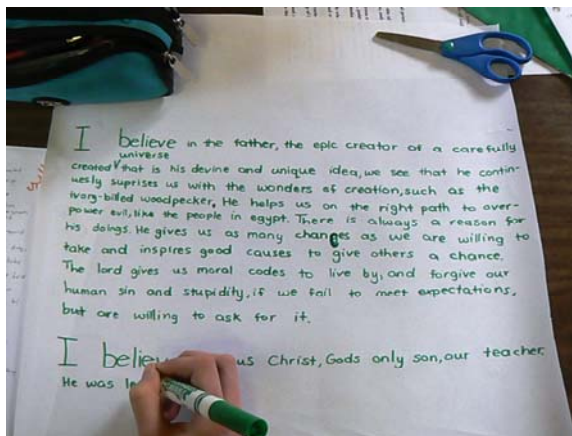 I believe in the father, the epic creator of a carefully
universe
created that is his devine and unique idea, we see that he contin-
uesly suprises us with the wonders of creation, such as the
ivory-billed woodpecker. He helps us on the right path to over-
power evil, like the people in egypt. There is always a reason for
his doings. He gives us as many chances as we are willing to
take and inspires good causes to give others a chance.
The lord gives us moral codes to live by, and forgive our
human sin and stupidity, if we fail to meet expectations,
but are willing to ask for it.
I believ us Christ, Gods only son, our teacher.
He was